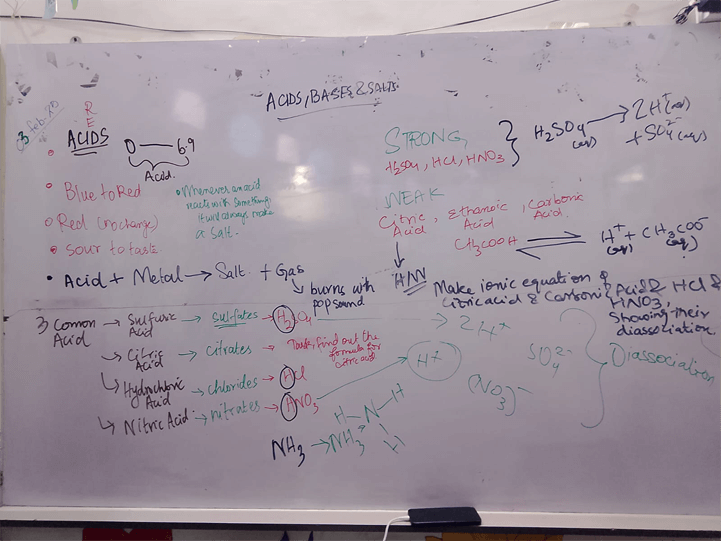 ACIDS, BASES & SALTS
3 feb-20
RE
ACIDS
0 — 6.9
Acid.
• Blue to Red
• Red (no change)
• Sour to taste
• Whenever an acid
reacts with something
it will always make
a salt.
• Acid + Metal → Salt + Gas
burns with
pop sound
STRONG
H2SO4, HCl, HNO3
H2SO4 (aq) → 2H+ (aq)
+ SO4 2- (aq)
WEAK
Citric Acid, Ethanoic Acid, Carbonic Acid.
CH3COOH ⇌ H+ (aq) + CH3COO- (aq)
H/W Make ionic equation of
Citric acid & Carbonic Acid & HCl &
HNO3,
Showing their
diassosiation.
3 Comon Acid → Sulfuric Acid → sulfates → H2SO4
→ 2H+
SO4 2-
↳ Citric Acid → citrates → Task, find out the
formula for
citric acid
↳ Hydrochloric Acid → chlorides → HCl
↳ Nitric Acid → nitrates → HNO3
H+
(NO3)-
Diassociation
NH3 → NH3
H—N—H
H